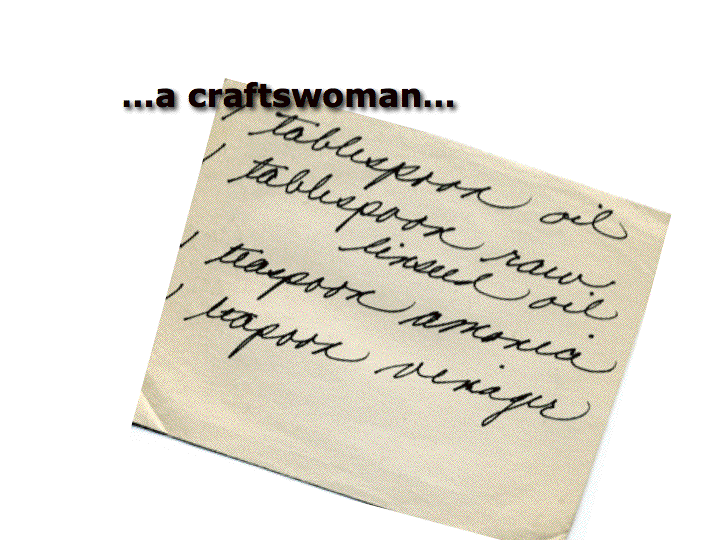 ...a craftswoman...
1 tablespoon oil
1 tablespoon raw
linseed oil
1 teaspoon amonia
1 teapoon vinager